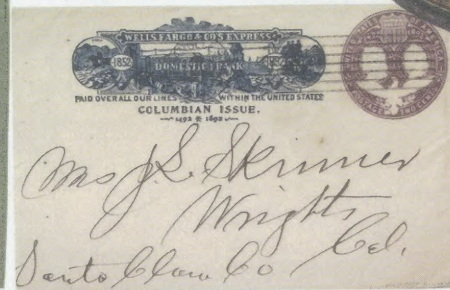 WELLS, FARGO & CO'S EXPRESS
1852
DOMESTIC FRANK
PAID OVER ALL OUR LINES WITHIN THE UNITED STATES
COLUMBIAN ISSUE.
1492 & 1892
Mrs J. S. Skinner
Wrights
Santa Clara Co Cal.